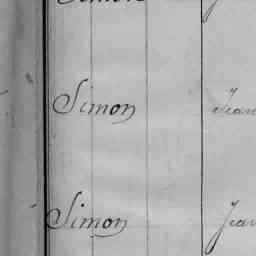 Simon Jean
Simon Jean